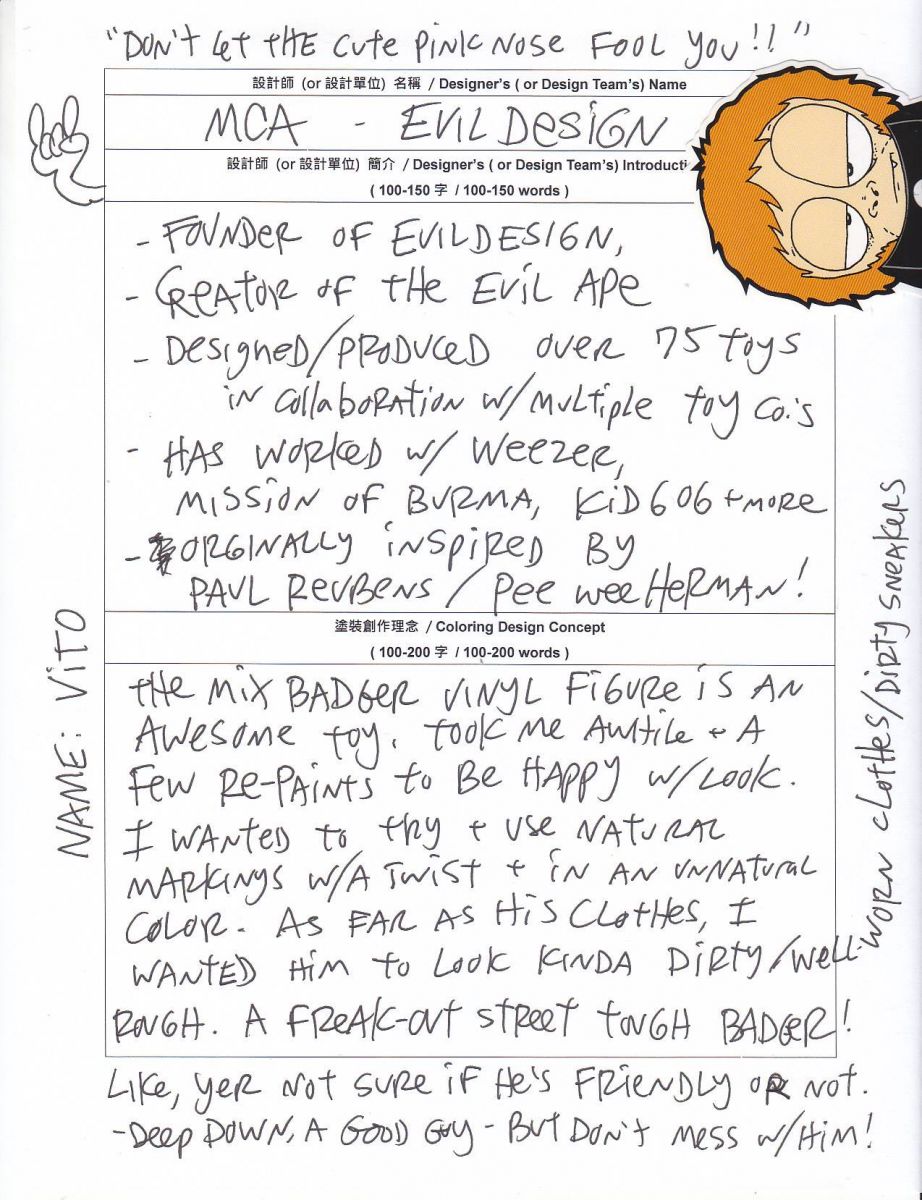 "DON'T LET THE CUTE PINK NOSE FOOL YOU!!"
設計師 (or 設計單位) 名稱 / Designer's ( or Design Team's) Name
MCA - EVILDESIGN
設計師 (or 設計單位) 簡介 / Designer's ( or Design Team's) Introducti
( 100-150 字 / 100-150 words )
- FOUNDER OF EVILDESIGN,
- CREATOR OF THE EVIL APE
- DESIGNED/PRODUCED OVER 75 TOYS
IN COLLABORATION W/ MULTIPLE TOY CO.'S
- HAS WORKED W/ WEEZER,
MISSION OF BURMA, KID 606 + MORE
- ORGINALLY INSPIRED BY
PAUL REUBENS / PEE WEE HERMAN!
塗裝創作理念 / Coloring Design Concept
( 100-200 字 / 100-200 words )
THE MIX BADGER VINYL FIGURE IS AN
AWESOME TOY. TOOK ME AWHILE + A
FEW RE-PAINTS TO BE HAPPY W/ LOOK.
I WANTED TO TRY + USE NATURAL
MARKINGS W/A TWIST + IN AN UNNATURAL
COLOR. AS FAR AS HIS CLOTHES, I
WANTED HIM TO LOOK KINDA DIRTY/WELL-WORN CLOTHES/DIRTY SNEAKERS
ROUGH. A FREAK-OUT STREET TOUGH BADGER!
LIKE, YER NOT SURE IF HE'S FRIENDLY OR NOT.
-DEEP DOWN, A GOOD GUY - BUT DON'T MESS W/HIM!
NAME: VITO